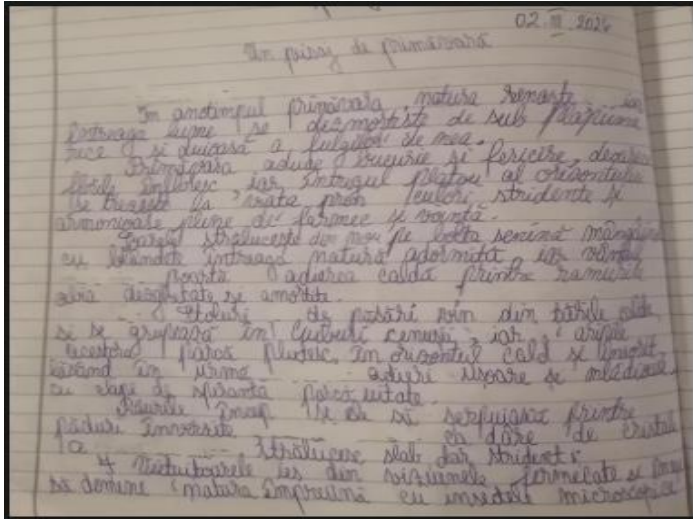 02 III 2026
Un peisaj de primăvară
In anotimpul primăvara, natura renaste, iar
întreaga lume se dezmorteste de sub
rece si duioasă a fulgilor de nea.
Primăvara aduce bucurie si fericire, deoarece
înfloresc, iar întregul platou al orizontului
se trezeste la viata prin culori stridente si
armonioase pline de farmec si vointă.
Soarele străluceste din nou pe bolta senină mângâind
cu blândete întreaga natură adormită, iar vântul
poartă adierea caldă printre ramurile
abia dezghetate si amortite.
Stoluri de păsări vin din tările calde
si se grupează în cenusii, iar aripile
acestora parcă plutesc în orizontul cald si linistit,
lăsând în urmă adieri usoare si
cu de sperantă parcă uitate.
Râurile încep se să serpuiască printre
păduri înverzite ca dâre de cristal
strălucesc slab dar strident.
Vietuitoarele ies din fermecate si
să domine natura împreună cu insecte microscopice